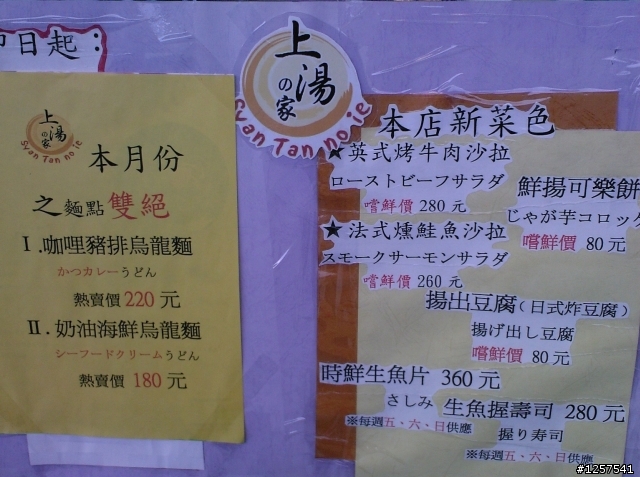 即日起：
上湯
の家
Syan Tan no ie
本月份
之麵點雙絕
I.咖哩豬排烏龍麵
かつカレーうどん
熱賣價 220 元
II.奶油海鮮烏龍麵
シーフードクリームうどん
熱賣價 180 元
上湯
の家
Syan Tan no ie
本店新菜色
★英式烤牛肉沙拉
ローストビーフサラダ
嚐鮮價 280 元
★法式燻鮭魚沙拉
スモークサーモンサラダ
嚐鮮價 260 元
鮮揚可樂餅
じゃが芋コロッケ
嚐鮮價 80 元
揚出豆腐(日式炸豆腐)
揚げ出し豆腐
嚐鮮價 80 元
時鮮生魚片 360 元
さしみ
※每週五、六、日供應
生魚握壽司 280 元
握り寿司
※每週五、六、日供應
#1257541